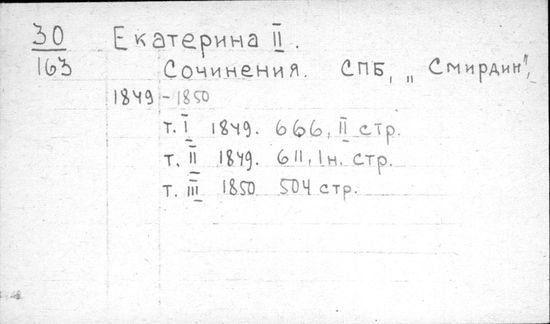 30 Екатерина II.
163 Сочинения. СПБ, „Смирдин",
1849-1850
т. I 1849. 666, II стр.
т. II 1849. 611, 1н. стр.
т. III 1850 504 стр.